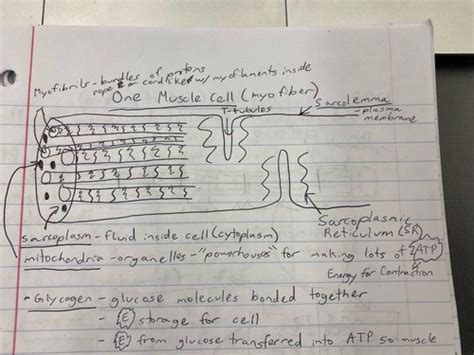 Myofibrils - bundles of protiens
rope or cordlike w/ myofilaments inside
One Muscle cell (myofiber)
T-tubules
Sarcolemma
- plasma
membrane
Sarcoplasmic
Reticulum (SR)
Sarcoplasm - fluid inside cell (cytoplasm)
mitochondria - organelles - "powerhouses" for making lots of ATP
Energy for Contraction
- Glycogen - glucose molecules bonded together
- E storage for cell
- E from glucose transferred into ATP so muscle